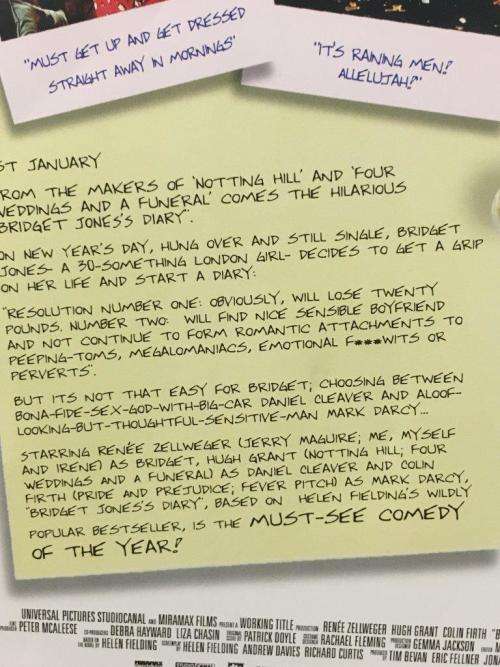 "MUST GET UP AND GET DRESSED
STRAIGHT AWAY IN MORNINGS"
"IT'S RAINING MEN!
ALLELUJAH!"
ST JANUARY
ROM THE MAKERS OF 'NOTTING HILL' AND 'FOUR
WEDDINGS AND A FUNERAL' COMES THE HILARIOUS
BRIDGET JONES'S DIARY".
ON NEW YEAR'S DAY, HUNG OVER AND STILL SINGLE, BRIDGET
JONES- A 30-SOMETHING LONDON GIRL- DECIDES TO GET A GRIP
ON HER LIFE AND START A DIARY:
"RESOLUTION NUMBER ONE: OBVIOUSLY, WILL LOSE TWENTY
POUNDS. NUMBER TWO: WILL FIND NICE SENSIBLE BOYFRIEND
AND NOT CONTINUE TO FORM ROMANTIC ATTACHMENTS TO
PEEPING-TOMS, MEGALOMANIACS, EMOTIONAL F***WITS OR
PERVERTS".
BUT ITS NOT THAT EASY FOR BRIDGET; CHOOSING BETWEEN
BONA-FIDE-SEX-GOD-WITH-BIG-CAR DANIEL CLEAVER AND ALOOF-
LOOKING-BUT-THOUGHTFUL-SENSITIVE-MAN MARK DARCY...
STARRING RENÉE ZELLWEGER (JERRY MAGUIRE; ME, MYSELF
AND IRENE) AS BRIDGET, HUGH GRANT (NOTTING HILL; FOUR
WEDDINGS AND A FUNERAL) AS DANIEL CLEAVER AND COLIN
FIRTH (PRIDE AND PREJUDICE; FEVER PITCH) AS MARK DARCY,
"BRIDGET JONES'S DIARY", BASED ON HELEN FIELDING'S WILDLY
POPULAR BESTSELLER, IS THE MUST-SEE COMEDY
OF THE YEAR!
UNIVERSAL PICTURES STUDIOCANAL AND MIRAMAX FILMS PRESENT A WORKING TITLE PRODUCTION RENÉE ZELLWEGER HUGH GRANT COLIN FIRTH "B
PETER MCALEESE CO-PRODUCERS DEBRA HAYWARD LIZA CHASIN PATRICK DOYLE RACHAEL FLEMING GEMMA JACKSON
HELEN FIELDING HELEN FIELDING ANDREW DAVIES RICHARD CURTIS TIM BEVAN ERIC FELLNER JON
MIRAMAX